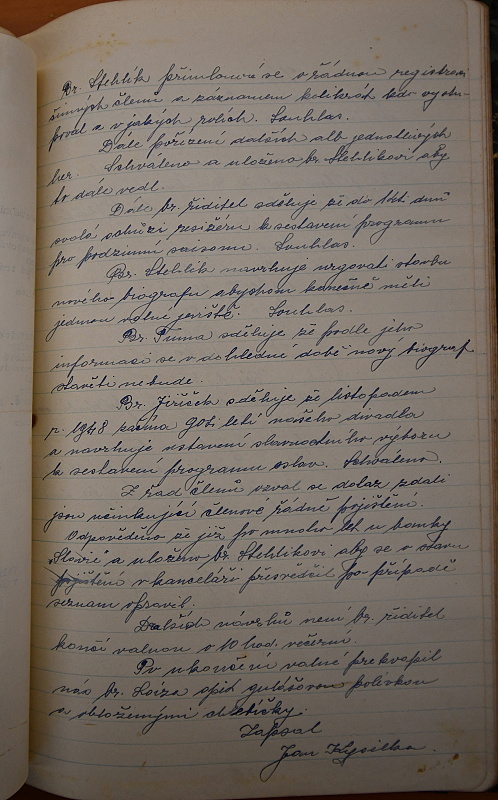 Br. Stehlík přimlouvá se o řádnou registraci
činných členů a záznamem kolikrát kdo vystu-
poval a v jakých rolích. Souhlas.
Dále pořízení dalších alb jednotlivých
her. Schváleno a uloženo br. Stehlíkovi aby
to dále vedl.
Dále br. ředitel sděluje že do 14t dnů
svolá schůzi režiséru k sestavení programu
pro podzimní saisonu. Souhlas.
Br. Stehlík navrhuje urgovati stavbu
nového biografu abychom konečně měli
jednou volné jeviště. Souhlas.
Br. Tůma sděluje že podle jeho
informací se v dohledné době nový biograf
stavěti nebude.
Br. Jiříček sděluje že listopadem
r. 1948 začíná 90ti letí našeho divadla
a navrhuje ustavení slavnostního výboru
k sestavení programu oslav. Schváleno.
Z řad členů vznesl se dotaz zdali
jsou účinkující členové řádně pojištěni.
Odpověděno že již po mnoho let u banky
„Slavie" a uloženo br. Stehlíkovi aby se o stavu
pojištění v kanceláři přesvědčil po případě
seznam opravil.
Dalších návrhů není br. ředitel
končí valnou o 10 hod. večerní.
Po ukončení valné překvapil
nás br. opět gulášovou polívkou
a obloženými chlebíčky.
Zapsal
Jan